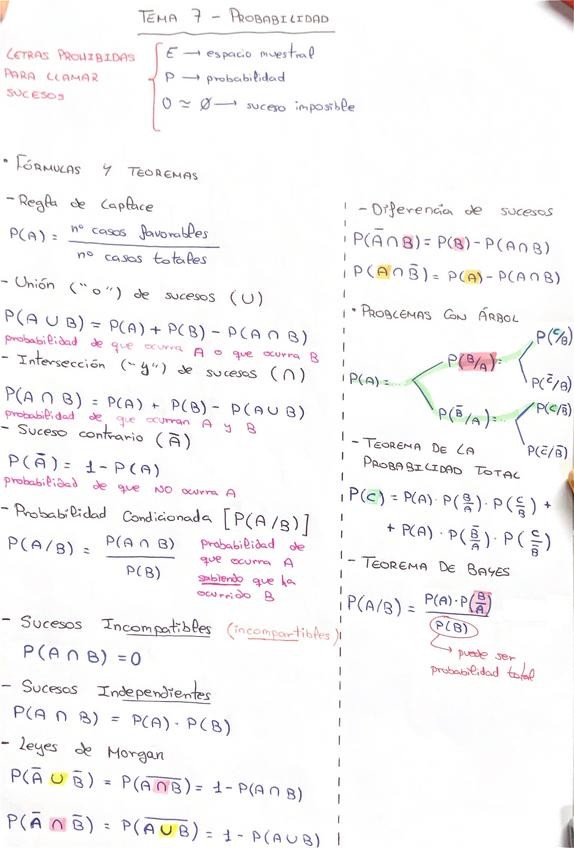 TEMA 7 - PROBABILIDAD
LETRAS PROHIBIDAS
PARA LLAMAR
SUCESOS
E → espacio muestral
P → probabilidad
O ≃ Ø → suceso imposible
• FÓRMULAS Y TEOREMAS
- Regla de Laplace
P(A) = nº casos favorables / nº casos totales
- Unión ("o") de sucesos (∪)
P(A ∪ B) = P(A) + P(B) - P(A ∩ B)
probabilidad de que ocurra A o que ocurra B
- Intersección (-y") de sucesos (∩)
P(A ∩ B) = P(A) + P(B) - P(A ∪ B)
probabilidad de que ocurran A y B
- Suceso contrario (Ā)
P(Ā) = 1 - P(A)
probabilidad de que NO ocurra A
- Probabilidad Condicionada [P(A/B)]
P(A/B) = P(A ∩ B) / P(B)
probabilidad de
que ocurra A
sabiendo que ha
ocurrido B
- Sucesos Incompatibles (incompartibles)
P(A ∩ B) = 0
- Sucesos Independientes
P(A ∩ B) = P(A) · P(B)
- Leyes de Morgan
P(Ā ∪ B̄) = P(A̅ ̅∩̅ ̅B̅) = 1 - P(A ∩ B)
P(Ā ∩ B̄) = P(A̅ ̅∪̅ ̅B̅) = 1 - P(A ∪ B)
- Diferencia de sucesos
P(Ā ∩ B) = P(B) - P(A ∩ B)
P(A ∩ B̄) = P(A) - P(A ∩ B)
• PROBLEMAS CON ÁRBOL
P(C/B)
P(B/A) =
P(A) =
P(C̄/B)
P(B̄/A) =
P(C/B̄)
P(C̄/B̄)
- TEOREMA DE LA
PROBABILIDAD TOTAL
P(C) = P(A) · P(B/A) · P(C/B) +
+ P(A) · P(B̄/A) · P(C/B̄)
- TEOREMA DE BAYES
P(A/B) = P(A) · P(B/A) / P(B)
→ puede ser
probabilidad total